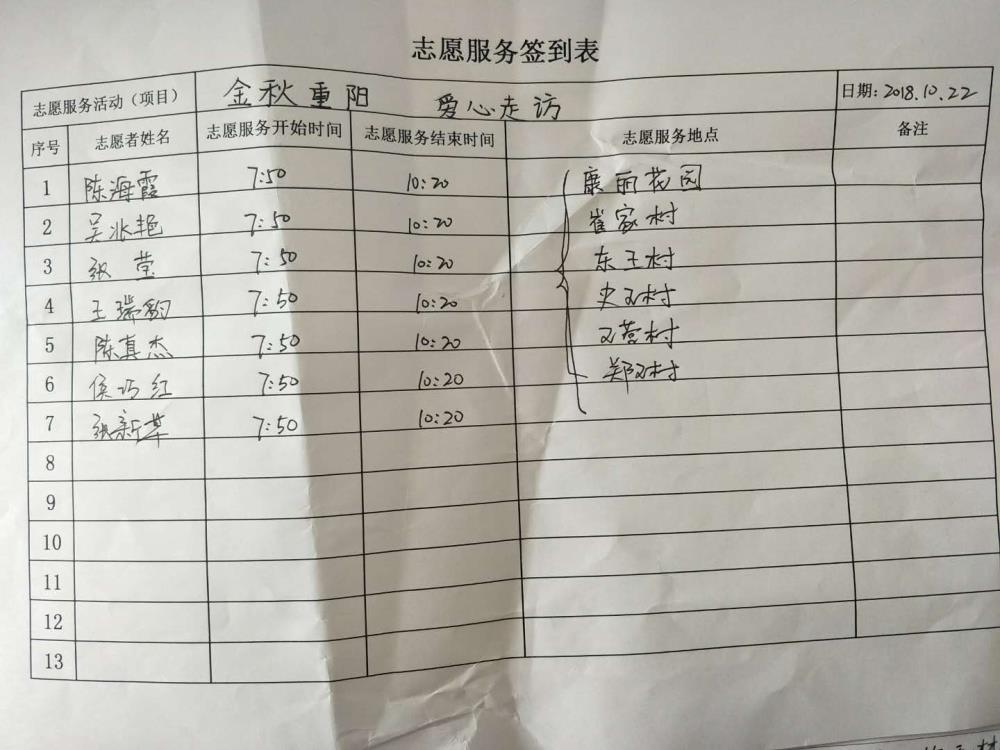 志愿服务签到表
志愿服务活动（项目） 金秋重阳 爱心走访 日期：2018.10.22
序号 志愿者姓名 志愿服务开始时间 志愿服务结束时间 志愿服务地点 备注
1 陈海霞 7:50 10:20 康丽花园
2 吴兆艳 7:50 10:20 崔家村
3 张莹 7:50 10:20 东王村
4 王瑞豹 7:50 10:20
5 陈真杰 7:50 10:20
6 侯巧红 7:50 10:20
7 张新苹 7:50 10:20
8
9
10
11
12
13